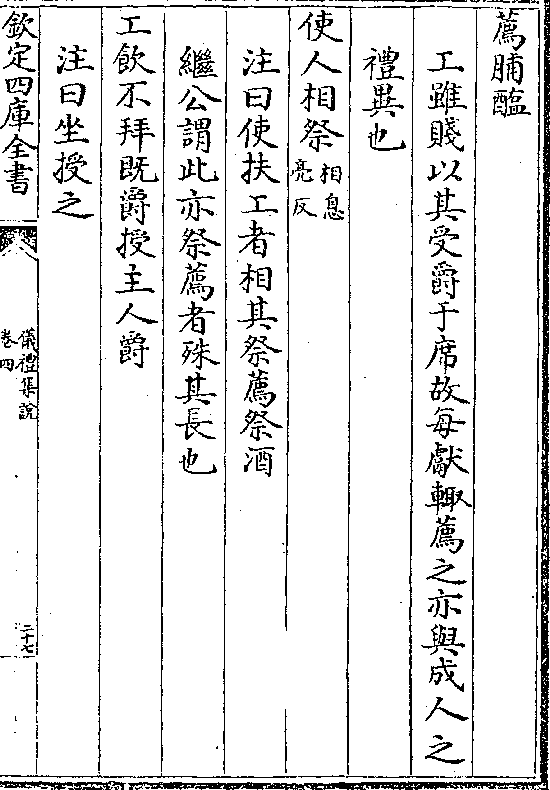 薦脯醢
工雖賤以其受爵于席故每獻輙薦之亦與成人之
禮異也
使人相祭相息亮反
注曰使扶工者相其祭薦祭酒
繼公謂此亦祭薦者殊其長也
工飲不拜既爵授主人爵
注曰坐授之
欽定四庫全書
儀禮集說
卷四
二十七